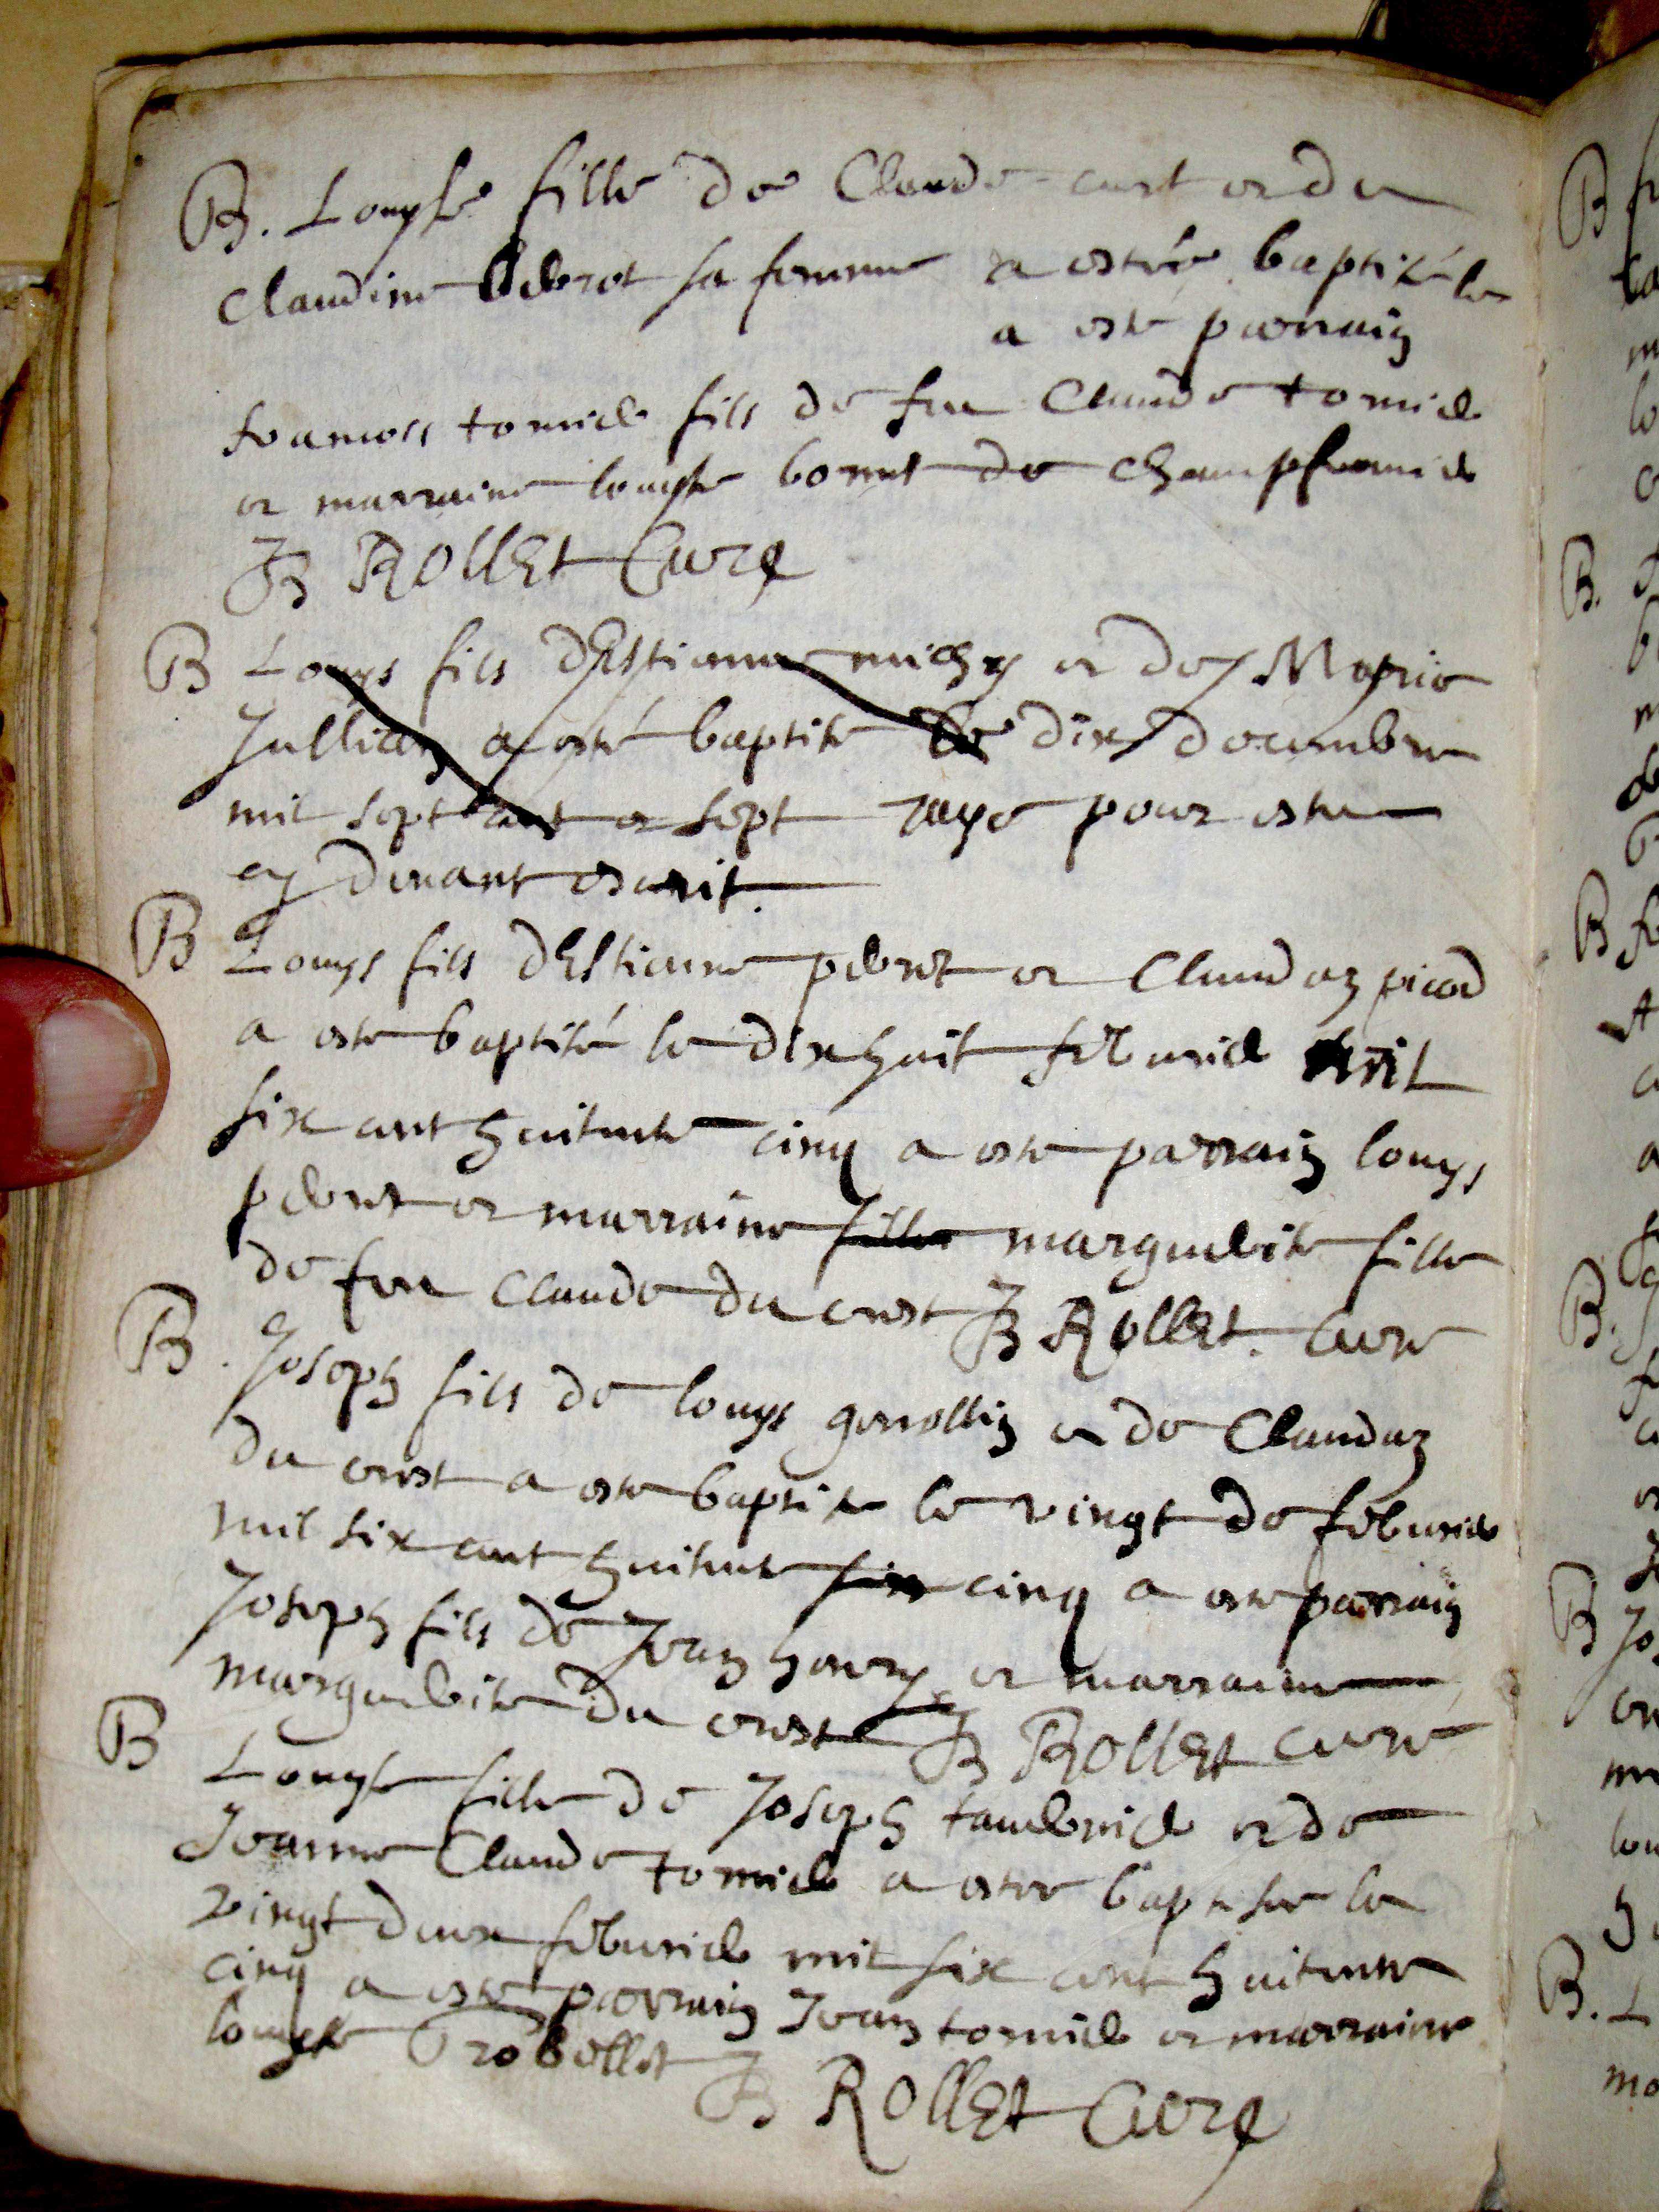 B. Louyse fille de Claude curt et de
Claudine sa femme a estée baptisée le
a esté parrain
francois tornier fils de feu Claude tornier
et marraine louyse bornet de Champfromier
JB ROLLEt Curé
B Louys fils dEstienne michy et de Marie
Jullian a esté baptisé le dix decembre
mil sept cent et sept rayé pour estre
cy devant escrit.
B Louys fils dEstienne et Claudaz picod
a esté baptisé le dix huit febvrier mil
six cent huitante cinq a esté parrain louys
et marraine fille marguerite fille
de feu Claude du crest JB ROLLEt. Curé
B. Joseph fils de louys genollin et de Claudaz
du crest a esté baptisé le vingt de febvrier
mil six cent huitante six cinq a esté parrain
Joseph fils de Jean henry et marraine
marguerite du crest JB ROLLEt curé
B Louyse fille de Joseph et de
Jeanne Claude tornier a estée baptisée le
vingt deux febvrier mil six cent huitante
cinq a esté parrain Jean tornier et marraine
louyse JB ROLLEt Curé
B
B.
B
B.
B
B.